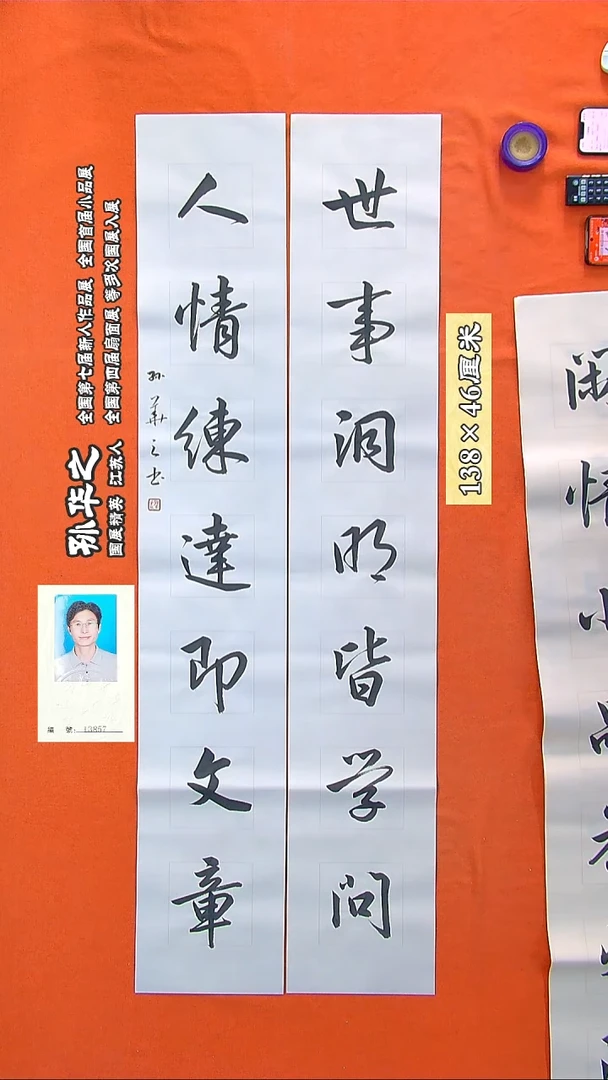 世事洞明皆学问
人情練達即文章
孙华之书
138×46厘米
孙华之
国展精英 江苏人
全国第七届新人作品展 全国首届小品展
全国第四届扇面展 等多次国展入展
編 號: 13857
闲情小品